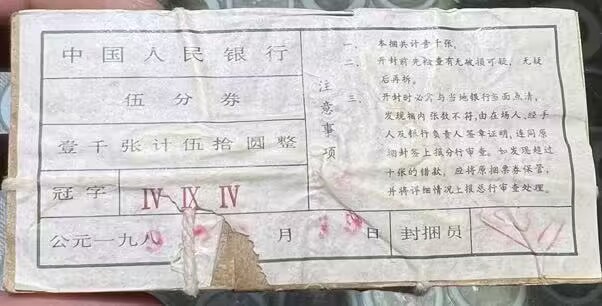 中国人民银行
伍分券
壹千张计伍拾圆整
冠字 IV IX IV
公元一九八 月 日 封捆员
注意事项
一、本捆共计壹千张。
二、开封前先检查有无破损可疑，无疑
后再拆。
三、开封时必需与当地银行当面点清，
发现捆内张数不符，由在场人、经手
人及银行负责人签章证明，连同原
捆封签上报分行审查。如发现超过
十张的借款，应将原捆票券保管，
并将详细情况上报总行审查处理。